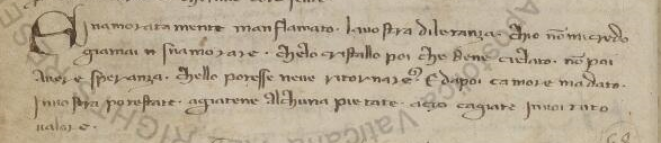 Sinamoratamente manflamato · lauostra dileranza · chio nō micredo
giamai n snamorare · chelo cristallo poi che bene cielato · nō poi
Auere speranza · chello potesse neue ritornare · E dapoi camore madato ·
Inuostra potestate · agiatene Alchuna pietate · acio cagiate inuoi tuto
ualore ·